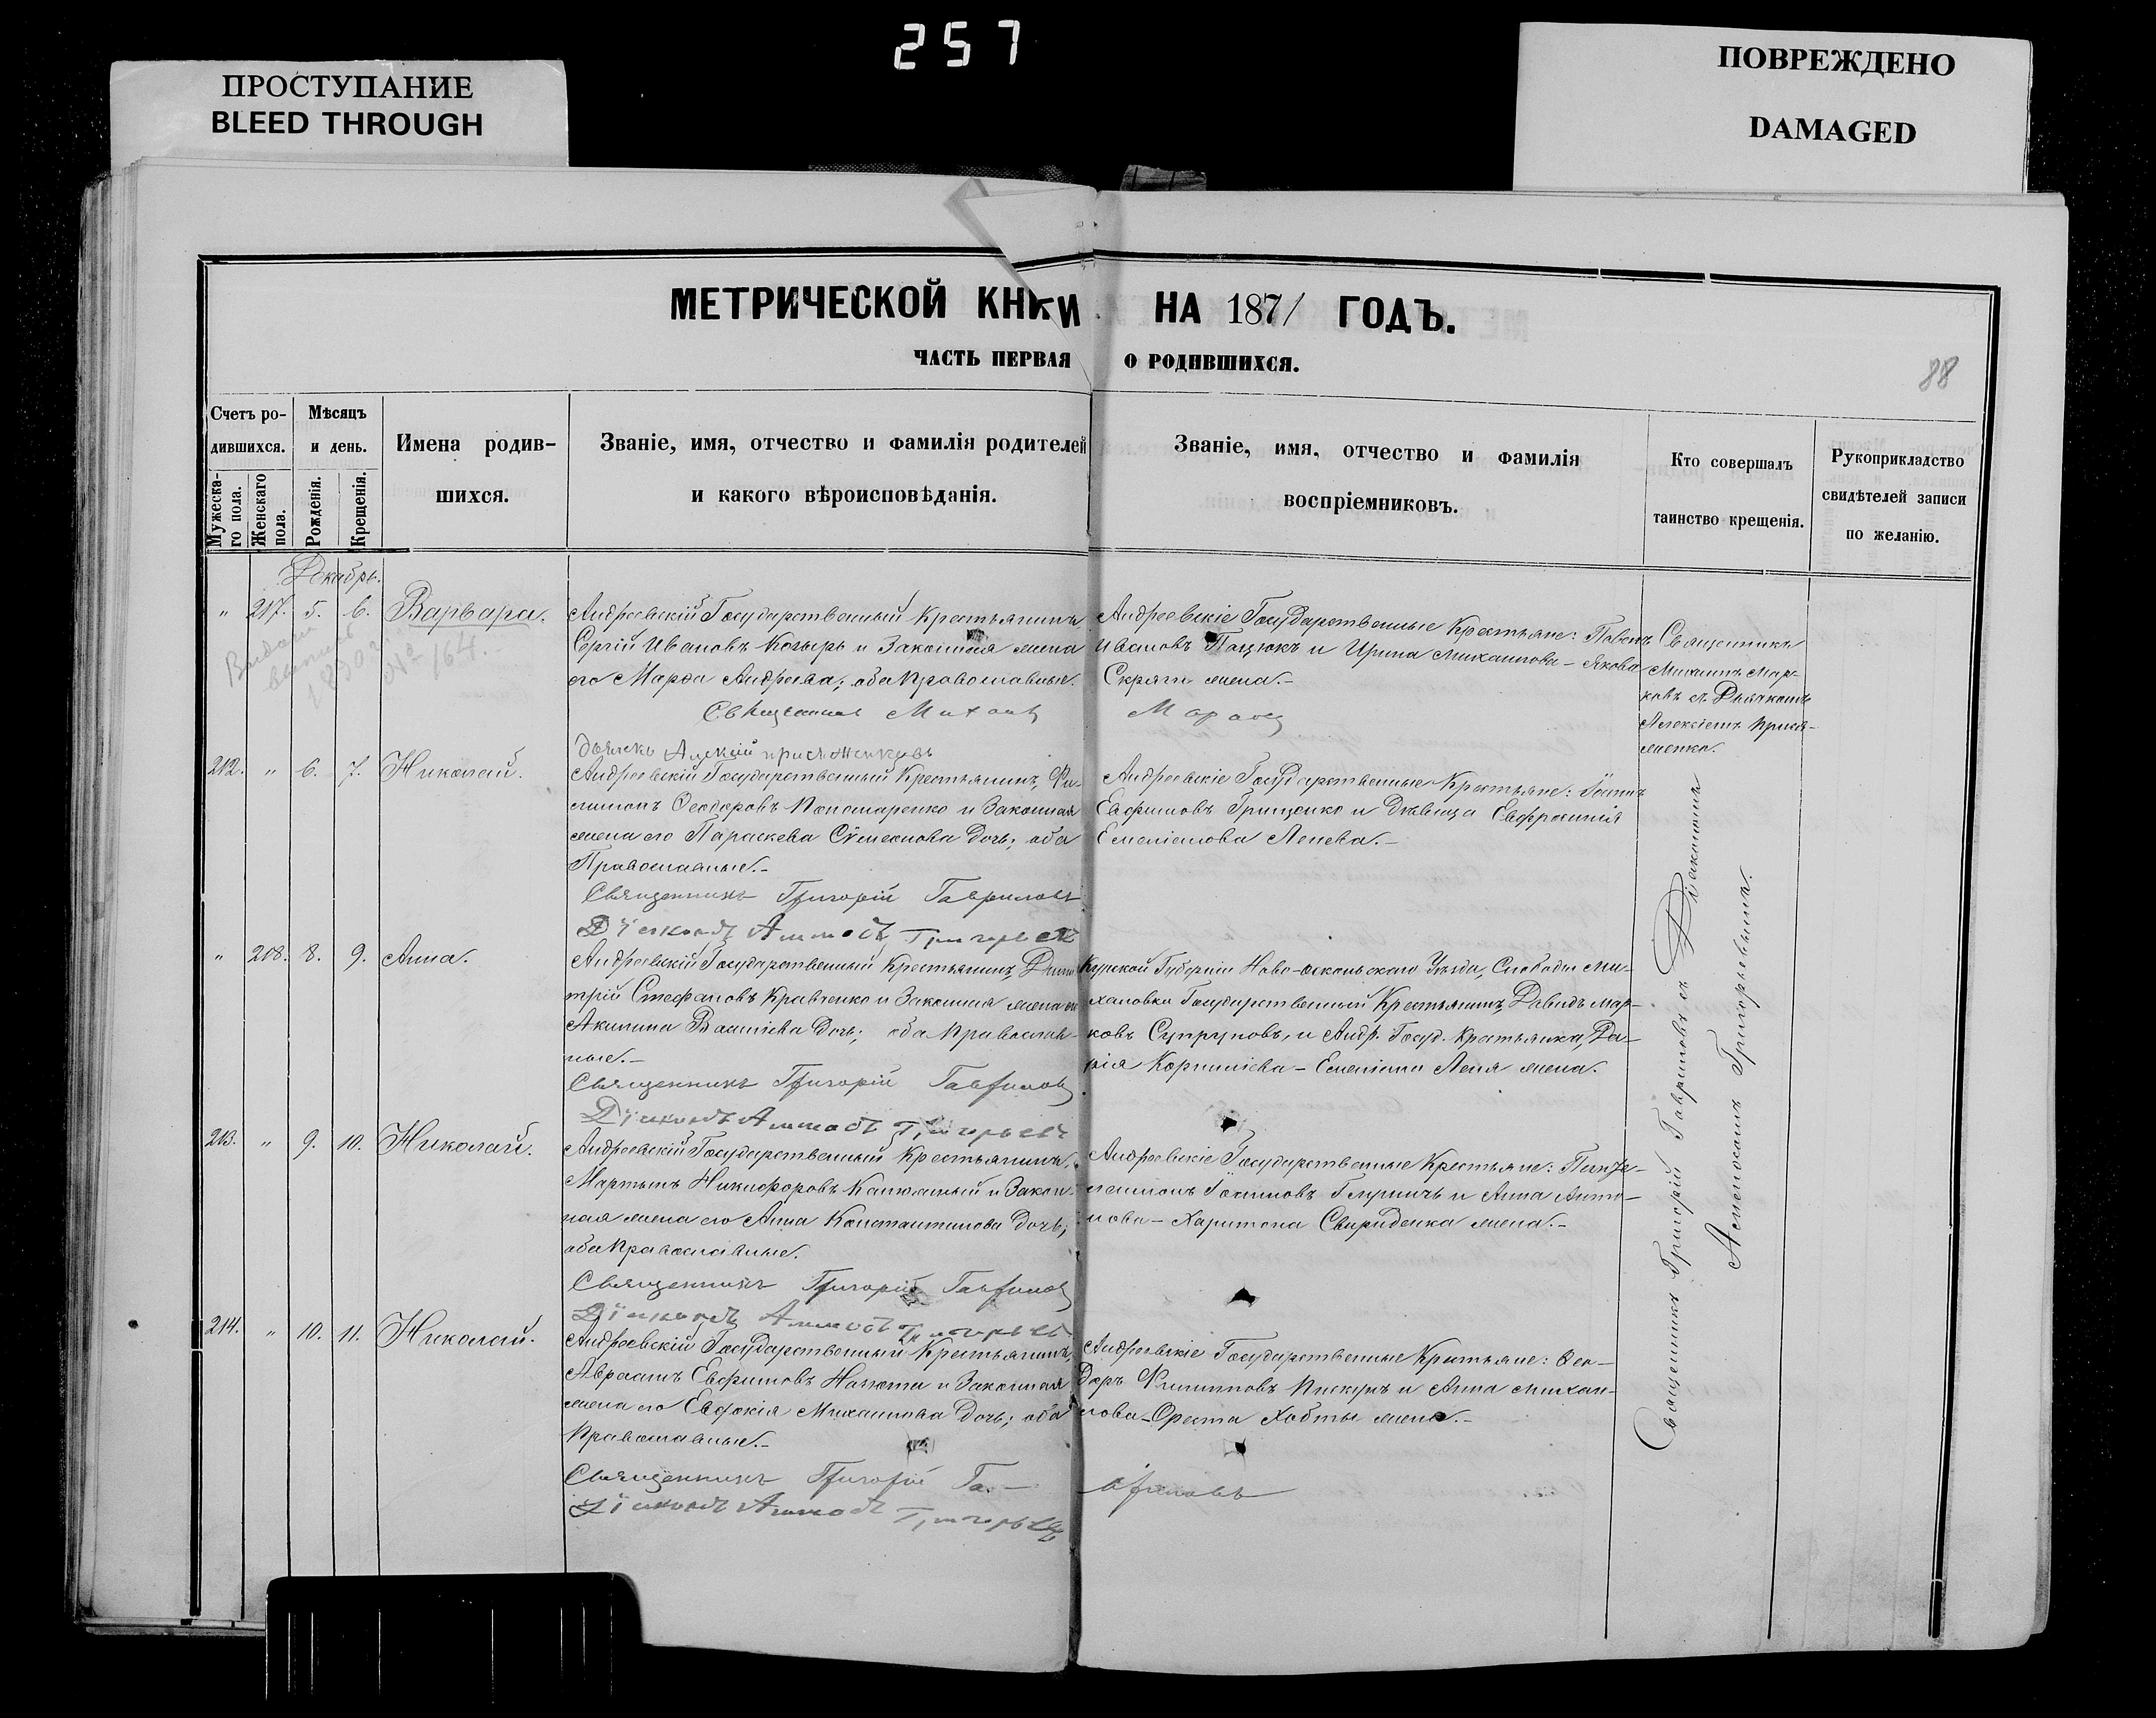 257
ПРОСТУПАНИЕ
BLEED THROUGH
ПОВРЕЖДЕНО
DAMAGED
МЕТРИЧЕСКОЙ КНИ НА 1871 ГОДЪ.
ЧАСТЬ ПЕРВАЯ О РОДИВШИХСЯ.
88
Счетъ ро-
дившихся.
Мужеска-
го пола.
Женскаго
пола.
Мѣсяцъ
и день.
Рожденія.
Крещенія.
Имена родив-
шихся.
Званіе, имя, отчество и фамилія родителей
и какого вѣроисповѣданія.
Званіе, имя, отчество и фамилія
воспріемниковъ.
Кто совершалъ
таинство крещенія.
Рукоприкладство
свидѣтелей записи
по желанію.
Декабрь.
" 217. 5. 6. Варвара.
1890 № 164.
Андреевскій Государственный Крестьянинъ
Сергій Ивановъ Козырь и Законная жена
его Марѳа Андреева; оба Православные.
Священникъ Михаилъ Марковъ
Андреевскіе Государственные Крестьяне: Павелъ
Ивановъ Пацюкъ и Ирина Михаилова - Якова
Скряги жена.-
Священникъ
Михаилъ Мар-
ковъ съ Дьячкомъ
Алексіемъ
212. " 6. 7. Николай.
Андреевскій Государственный Крестьянинъ, Фи-
лимонъ Ѳеодоровъ Пономаренко и Законная
жена его Параскева Сѵмеонова дочь; оба
Православные.-
Священникъ Григорій Гавриловъ
Діаконъ Григорьевъ
Андреевскіе Государственные Крестьяне:
Евфимовъ Гриценко и Дѣвица Евфросинія
Емеліанова Лепева.-
" 218. 8. 9. Анна.
Андреевскій Государственный Крестьянинъ, Дими-
трій Стефановъ Кравченко и Законная жена его
Акилина Василіева дочь; оба Православ-
ные.-
Священникъ Григорій Гавриловъ
Діаконъ Григорьевъ
Курской Губерніи Ново-оскольскаго Уѣзда, Слободы Ми-
хаиловки Государственный Крестьянинъ, Давидъ Мар-
ковъ Супруновъ, и Андр. Госуд. Крестьянка, Да-
рія Корниліева - Емеліана Лепя жена.
213. " 9. 10. Николай.
Андреевскій Государственный Крестьянинъ,
Мартынъ Никифоровъ и Закон-
ная жена его Анна Константинова дочь;
оба Православные.
Священникъ Григорій Гавриловъ
Діаконъ Григорьевъ
Андреевскіе Государственные Крестьяне: Панте-
леимонъ и Анна Анто-
нова - Харитона Свириденка жена.-
214. " 10. 11. Николай.
Андреевскій Государственный Крестьянинъ,
Авраамъ Евфимовъ и Законная
жена его Евдокія Михаилова дочь; оба
Православные.-
Священникъ Григорій Гавриловъ
Діаконъ Григорьевъ
Андреевскіе Государственные Крестьяне: Ѳео-
доръ Филипповъ и Анна Михаи-
лова - Ореста Хобты жена.-
Священникъ Григорій Гавриловъ съ Діакономъ
Григорьевымъ.